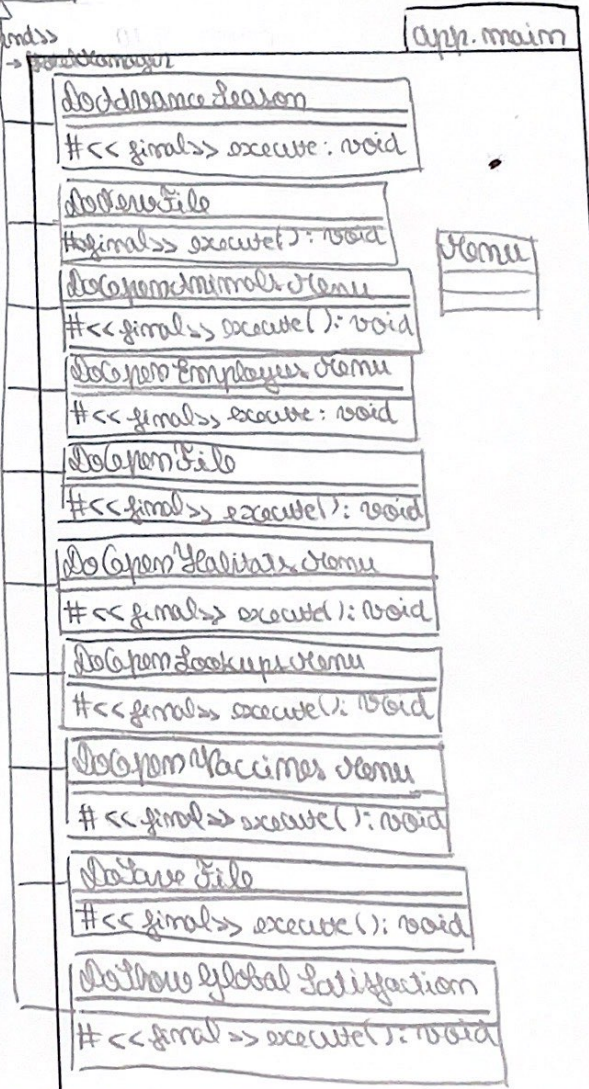 app.main
DoAdvanceSeason
#<<final>> execute: void
DoNewFile
#<final>> execute(): void
Menu
DoOpenAnimalsMenu
#<<final>> execute(): void
DoOpenEmployeesMenu
#<<final>> execute: void
DoOpenFile
#<<final>> execute(): void
DoOpenHabitatsMenu
#<<final>> execute(): void
DoOpenLookupsMenu
#<<final>> execute(): void
DoOpenVaccinesMenu
#<<final>> execute(): void
DoSaveFile
#<<final>> execute(): void
DoShowGlobalSatisfaction
#<<final>> execute(): void